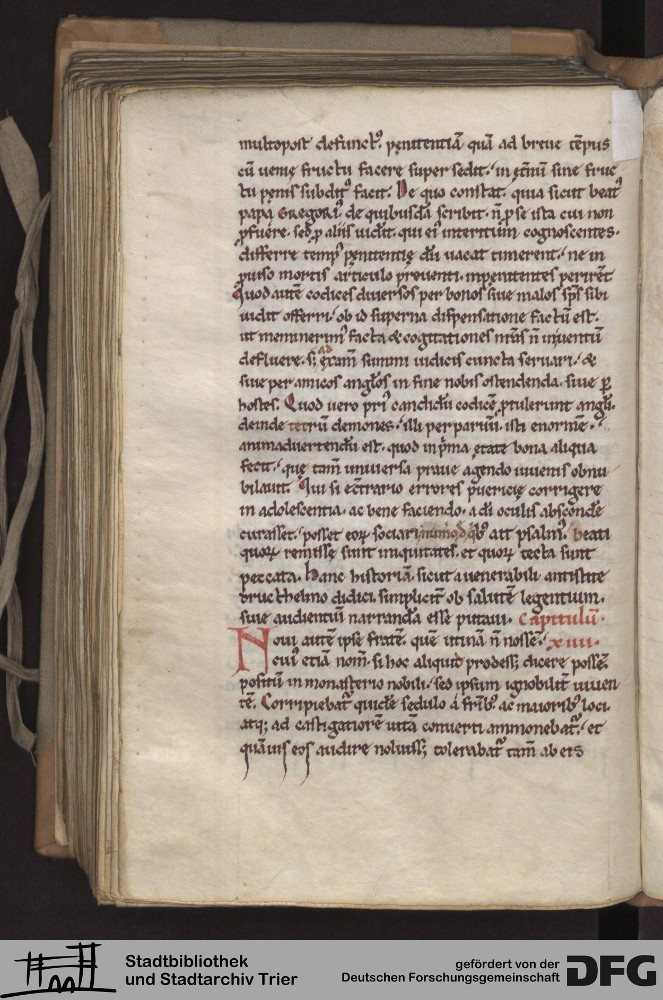 multopost defunct᷒. pęnitentiā quā ad breue tēpus
cū uenię fructu facere super sedit. in ęt̄nū sine fruc
tu pęnis subdit᷒ facit. De quo constat. quia sicut beat᷒
papa GREGORI᷒ de quibusdā scribit. n̄ ꝓ se ista cui non
ꝓfuere. sed ꝓ aliis uidit. qui ei᷒ interitum cognoscentes.
differre temp᷒ pęnitentię dū uacat timerent. ne in
puiso mortis articulo preuenti. inpenitentes perirēt
Quod autē codices diuersos per bonos siue malos sp̄s sibi
uidit offerri. ob id superna dispensatione factū est.
ut meminerim᷒ facta & cogitationes n̄ras n̄ in uentū
defluere. s; ad exam̄ summi iudicis cuncta seruari. &
siue per amicos angłos in fine nobis ostendenda. siue ꝑ
hostes. Quod uero pri᷒ candidū codicē ꝓtulerunt angłi.
deinde tetrū demones. illi perparuū. isti enormē.
animaduertendū est. quod in p̄ma ętate bona aliqua
fecit. quę tam̄ uniuersa praue agendo iuuenis obnu
bilauit. Qui si ec̄trario errores puericię corrigere
in adolescentia. ac bene faciendo. a dī oculis abscondē
curasset. posset eoꝝ sociari numero de qb᷒ ait psalm᷒. Beati
quoꝝ remissę sunt iniquitates. et quoꝝ tecta sunt
peccata. Hanc historiā. sicut a uenerabili antistite
Bructhelmo didici. simplicit̄ ob salutē legentium.
siue audientiū narrandā esse putaui. Capitulū.
Noui autē ipse fratrē. quē utinā n̄ nossē. xiiii.
cui᷒ etiā nom̄. si hoc aliquid prodess; dicere possē.
positū in monasterio nobili. sed ipsum ignobilit̄ uiuen
tē. Corripiebat᷒ quidē sedulo a frīb᷒ ac maiorib᷒ loci
atq; ad castigatiorē uitā conuerti ammonebat᷒. et
quāuis eos audire noluiss; tolerabat᷒ tam̄ ab eis
Stadtbibliothek
und Stadtarchiv Trier
gefördert von der
Deutschen Forschungsgemeinschaft
DFG